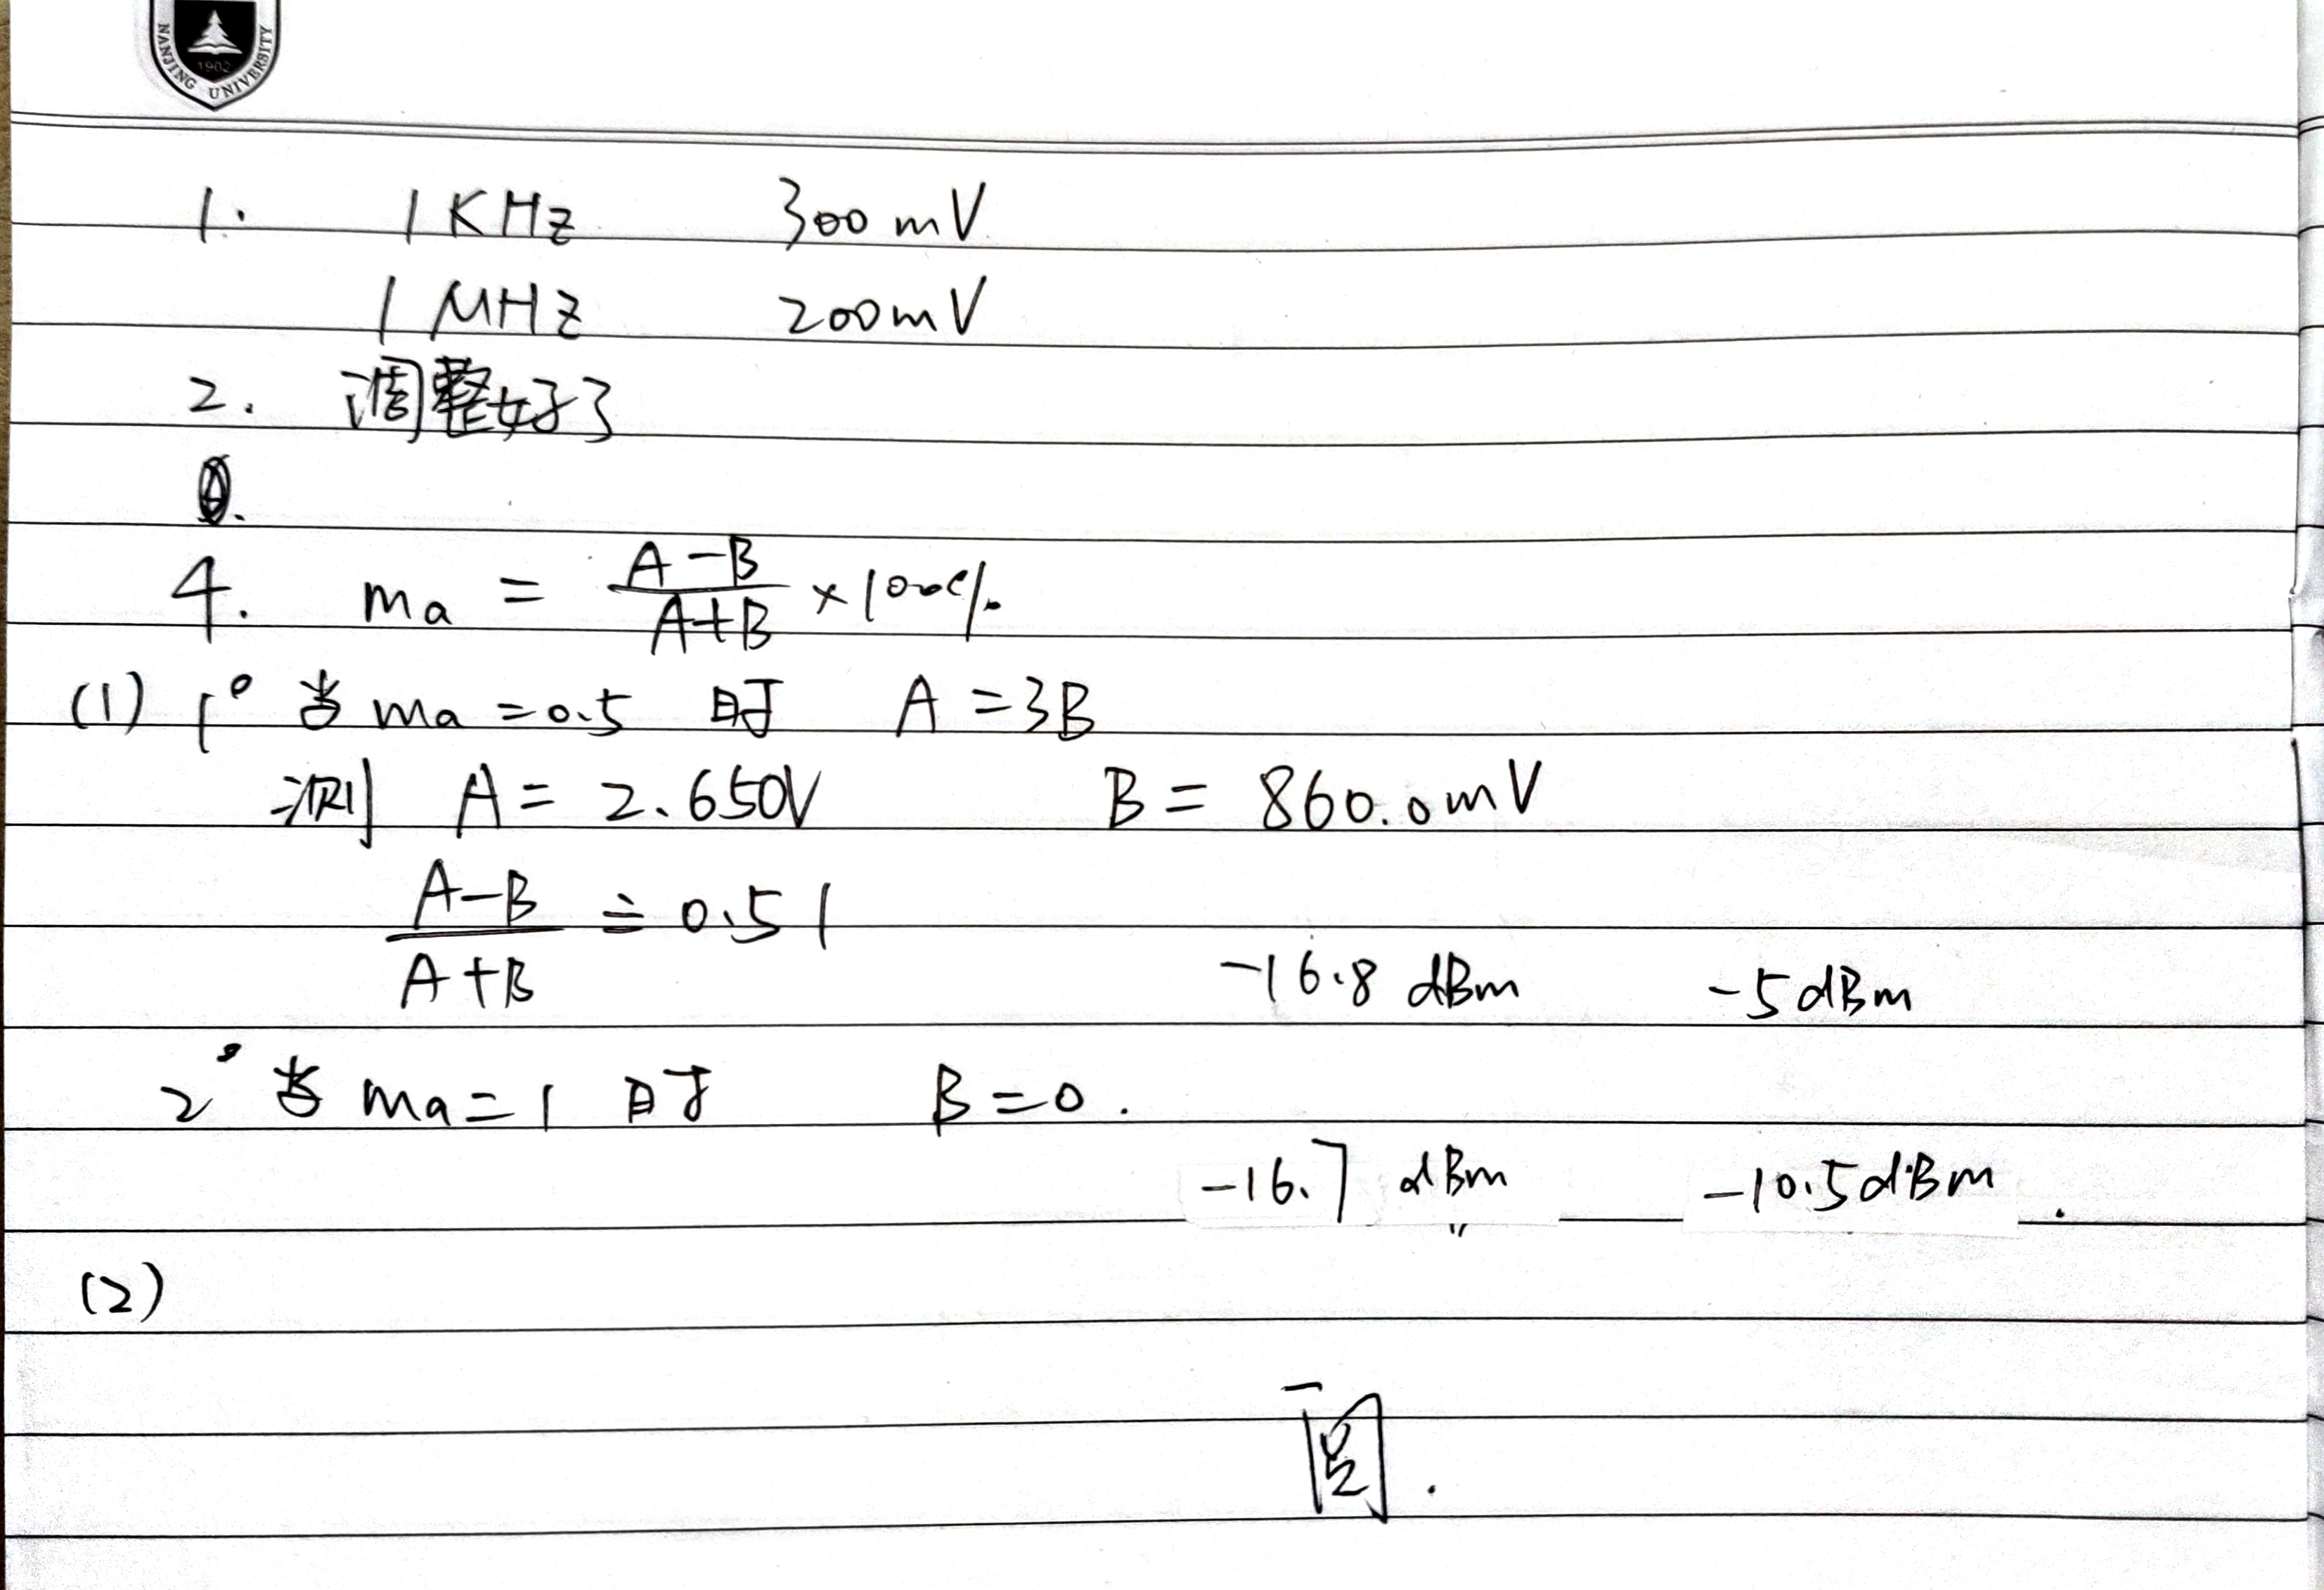 NANJING UNIVERSITY
1902
1. 1KHz 300mV
1MHz 200mV
2. 调整好了
4. ma = (A-B)/(A+B) ×100%
(1) 1° 当 ma=0.5 时 A=3B
测 A= 2.650V B= 860.0mV
(A-B)/(A+B) ≐ 0.51
-16.8 dBm -5dBm
2° 当 ma=1 时 B=0.
-16.7 dBm -10.5dBm.
(2)